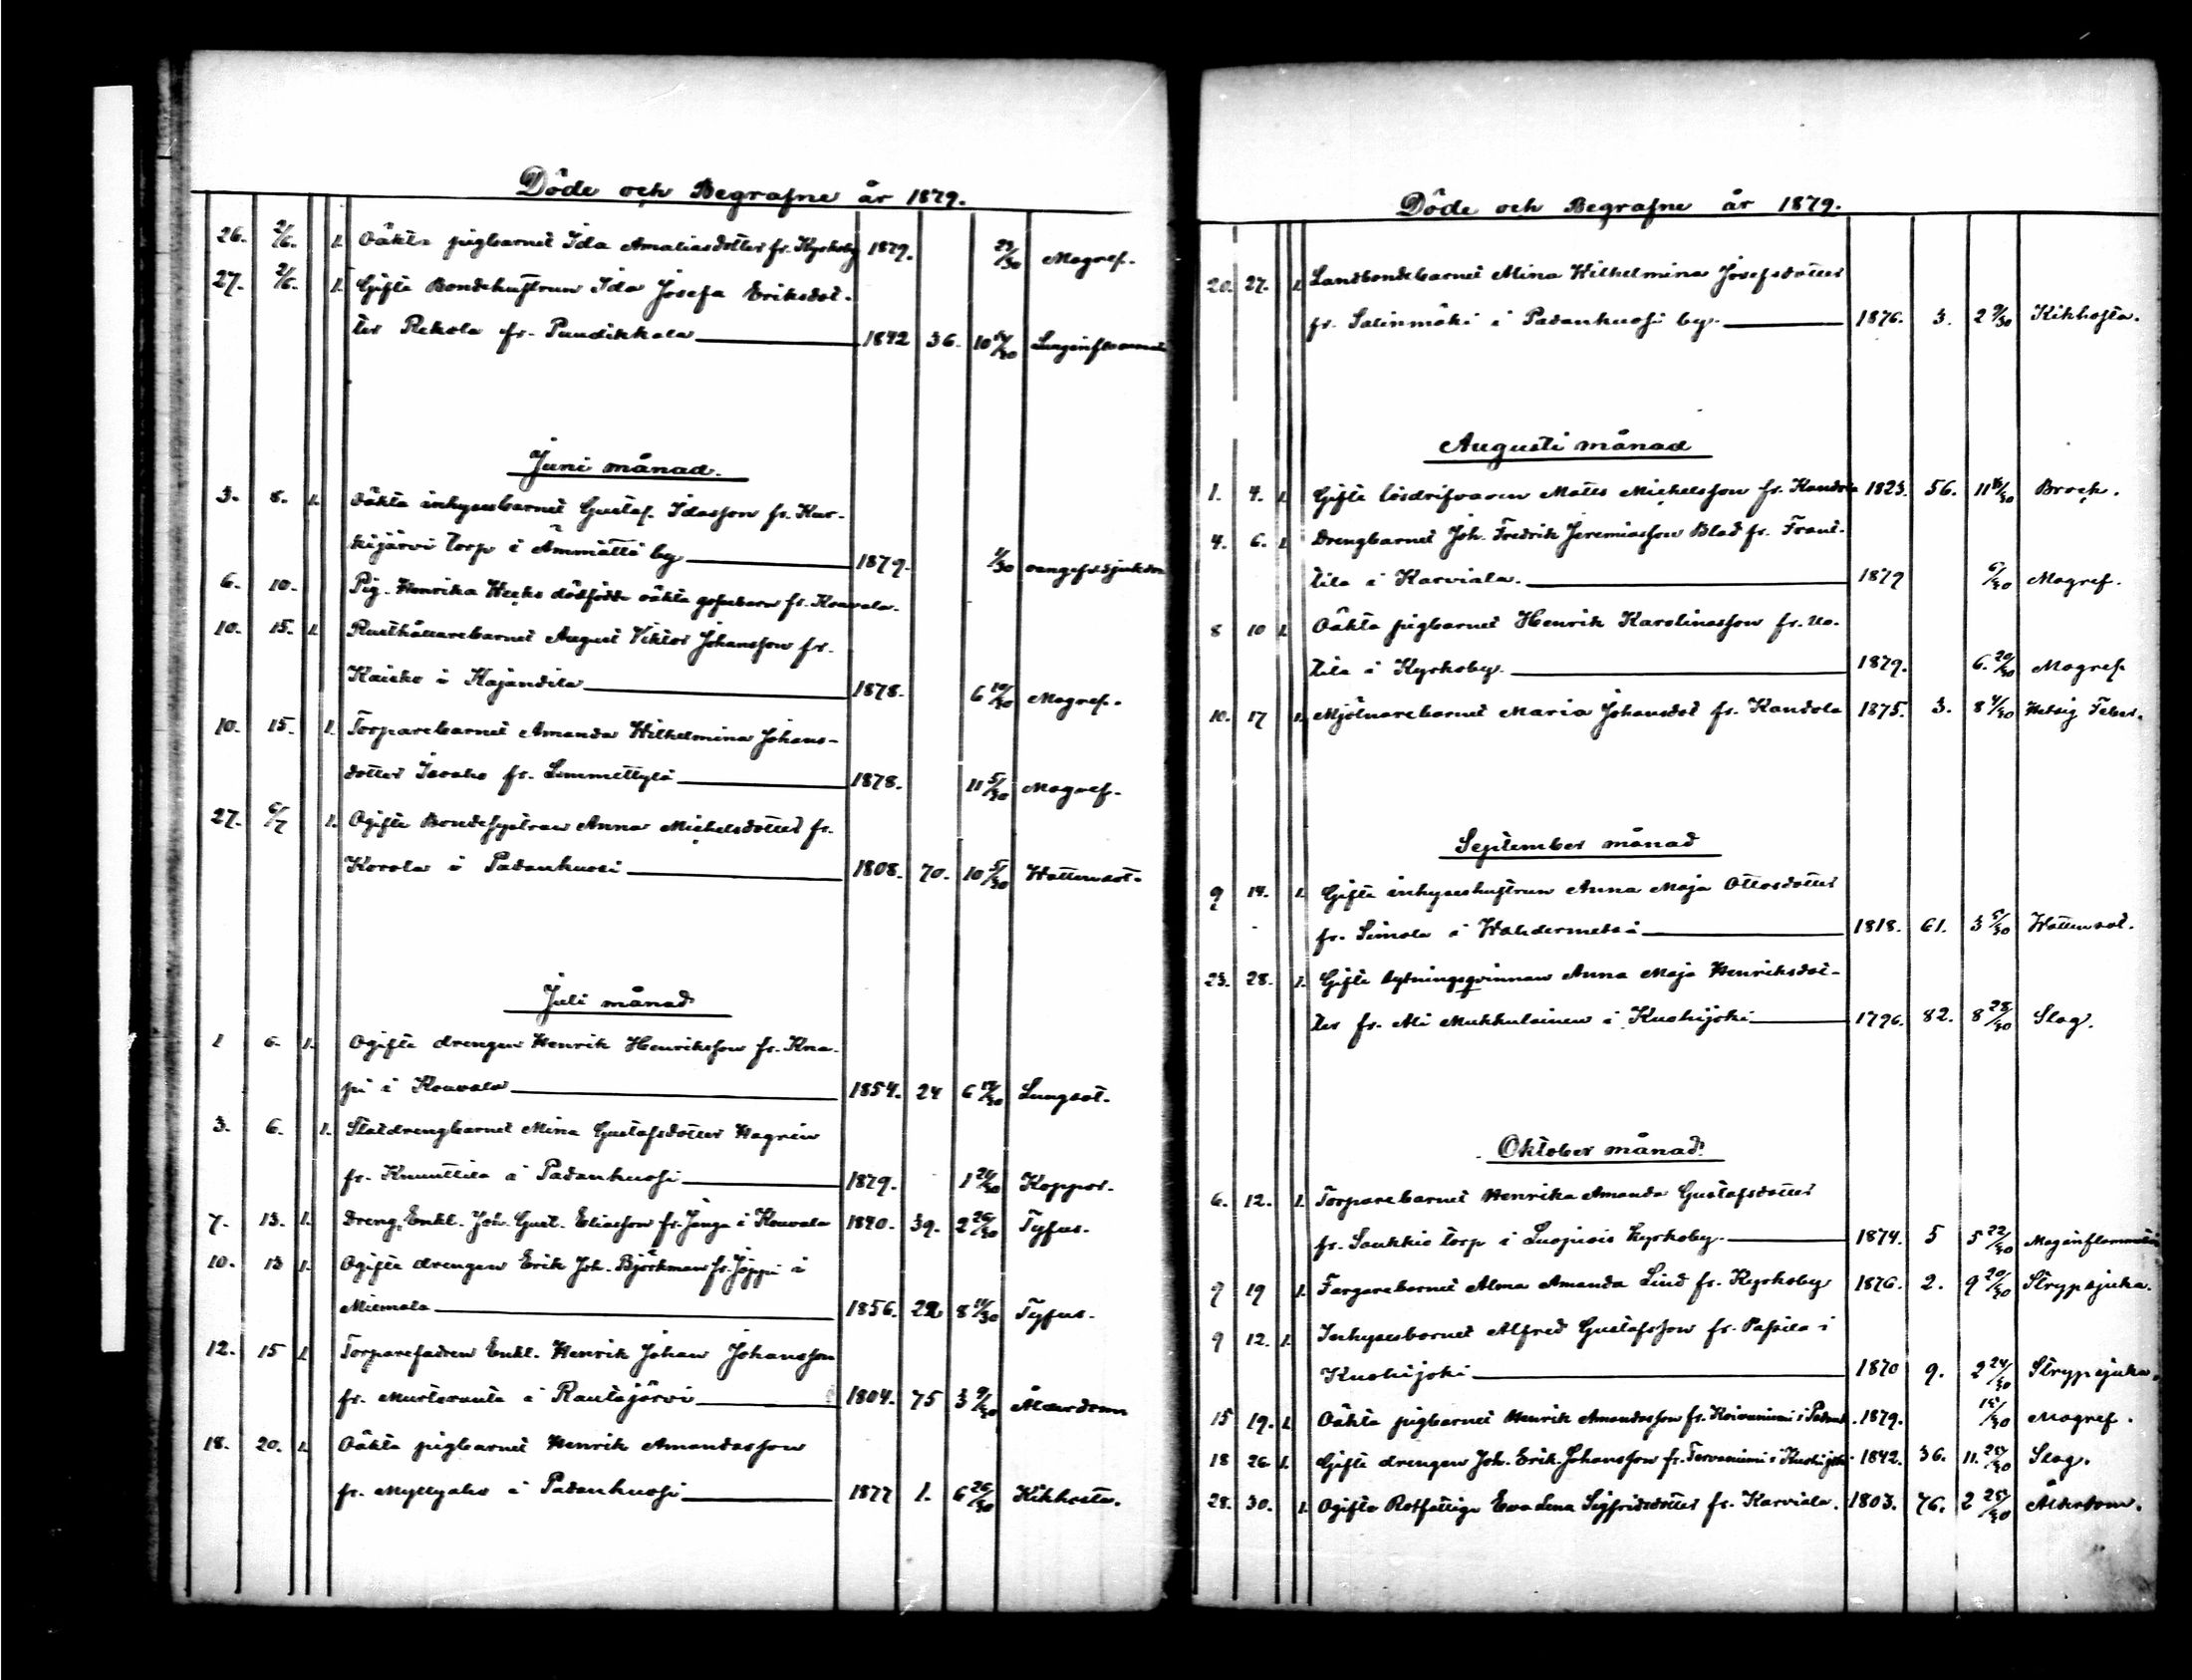 Döde och Begrafne år 1879.
26. 2/6. 1. Oäkta pigbarnet Ida Amaliasdotter fr. Kyrkoby 1879. 29/30 Magref.
27. 2/6. 1. Gifta Bondehustrun Ida Josefa Eriksdot-
ter Rekola fr. Puudikkala 1842 36. 10 Lunginflammat
Juni månad.
3. 8. 1. Oäkta inhysesbarnet Gustaf Idasson fr. Kur-
kijärvi torp i Ämmättä by 1879. 1/30
6. 10. Pig. Henrika dödfödde oäkta gossebarn fr. Kouvala.
10. 15. 1. Rusthållarebarnet August Viktor Johansson fr.
Kaisko i Kajandila 1878. 6 19/30 Magref.
10. 15. 1. Torparebarnet Amanda Wilhelmina Johans-
dotter fr. Lemmettylä 1878. 11 5/30 Magref.
27. 6/7 1. Ogifta Bondesystren Anna Michelsdotter fr.
Korola i Padankuosi 1808. 70. 10 5/30 Wattensot.
Juli månad
1 6. 1. Ogifte drengen Henrik Henriksson fr. Kna-
pi i Kouvala 1854. 24 6 17/30 Lungsot.
3. 6. 1. Statdrengbarnet Mina Gustafsdotter Hagrén
fr. Knuuttila i Padankuosi 1879. 1 24/30 Koppor.
7. 13. 1. Dreng. Enkl. Joh. Gust. Eliasson fr. Janga i Kouvala 1840. 39. 2 26/30 Tyfus.
10. 13 1. Ogifte drengen Erik Joh. Björkman fr. Joppi i
Miemala 1856. 22 8 11/30 Tyfus.
12. 15 1. Torparefadren Enkl. Henrik Johan Johansson
fr. Mustaranta i Rautajärvi 1804. 75 3 9/30 Ålderdom
18. 20. 1. Oäkta pigbarnet Henrik Amandasson
fr. Myllyaho i Padankuosi 1877 1. 6 26/30 Kikhosta.
Döde och Begrafne år 1879.
20. 27. 1. Landbondebarnet Mina Wilhelmina Josefsdotter
fr. Salinmäki i Padankuosi by. 1876. 3. 2 9/30 Kikhosta.
Augusti månad
1. 4. 1. Gifte lösdrifvaren Matts Michelsson fr. Kandola 1823. 56. 11 16/30 Bråck.
4. 6. 1. Drengbarnet Joh. Fredrik Jeremiasson Blad fr. Frant-
tila i Karviala. 1879 6/30 Magref.
8 10 1. Oäkta pigbarnet Henrik Karolinasson fr. Uo-
tila i Kyrkoby. 1879. 6. 20/30 Magref
10. 17 1. Mjölnarebarnet Maria Johansdot fr. Kandola 1875. 3. 8 4/30 Hetsig Feber.
September månad
9 14. 1. Gifta inhyseshustrun Anna Maja Ottosdotter
fr. Simola i Wahdermetsä 1818. 61. 3 5/30 Wattensot.
23. 28. 1. Gifta sytningsqvinnan Anna Maja Henriksdot-
ter fr. Ali Mukkulainen i Kuohijoki 1796. 82. 8 28/30 Slag.
Oktober månad
6. 12. 1. Torparebarnet Henrika Amanda Gustafsdotter
fr. Saukkio torp i Luopiois Kyrkoby. 1874. 5 5 22/30 Maginflammation
9 19 1. Färgarebarnet Alma Amanda Lind fr. Kyrkoby 1876. 2. 9 20/30 Strypsjuka.
9 12. 1. Inhysesbarnet Alfred Gustafsson fr. Passila i
Kuohijoki 1870 9. 2 24/30 Strypsjuka.
15 19. 1. Oäkta pigbarnet Henrik Amandasson fr. Koivuniemi i Padank. 1879. 15/30 Magref.
18 26. 1. Gifte drengen Joh. Erik Johansson fr. Tervaniemi i Kuohijoki 1842. 36. 11. 25/30 Slag.
28. 30. 1. Ogifta Rotfattiga Eva Lena Sigfridsdotter fr. Karviala. 1803. 76. 2 25/30 Ålderdom.